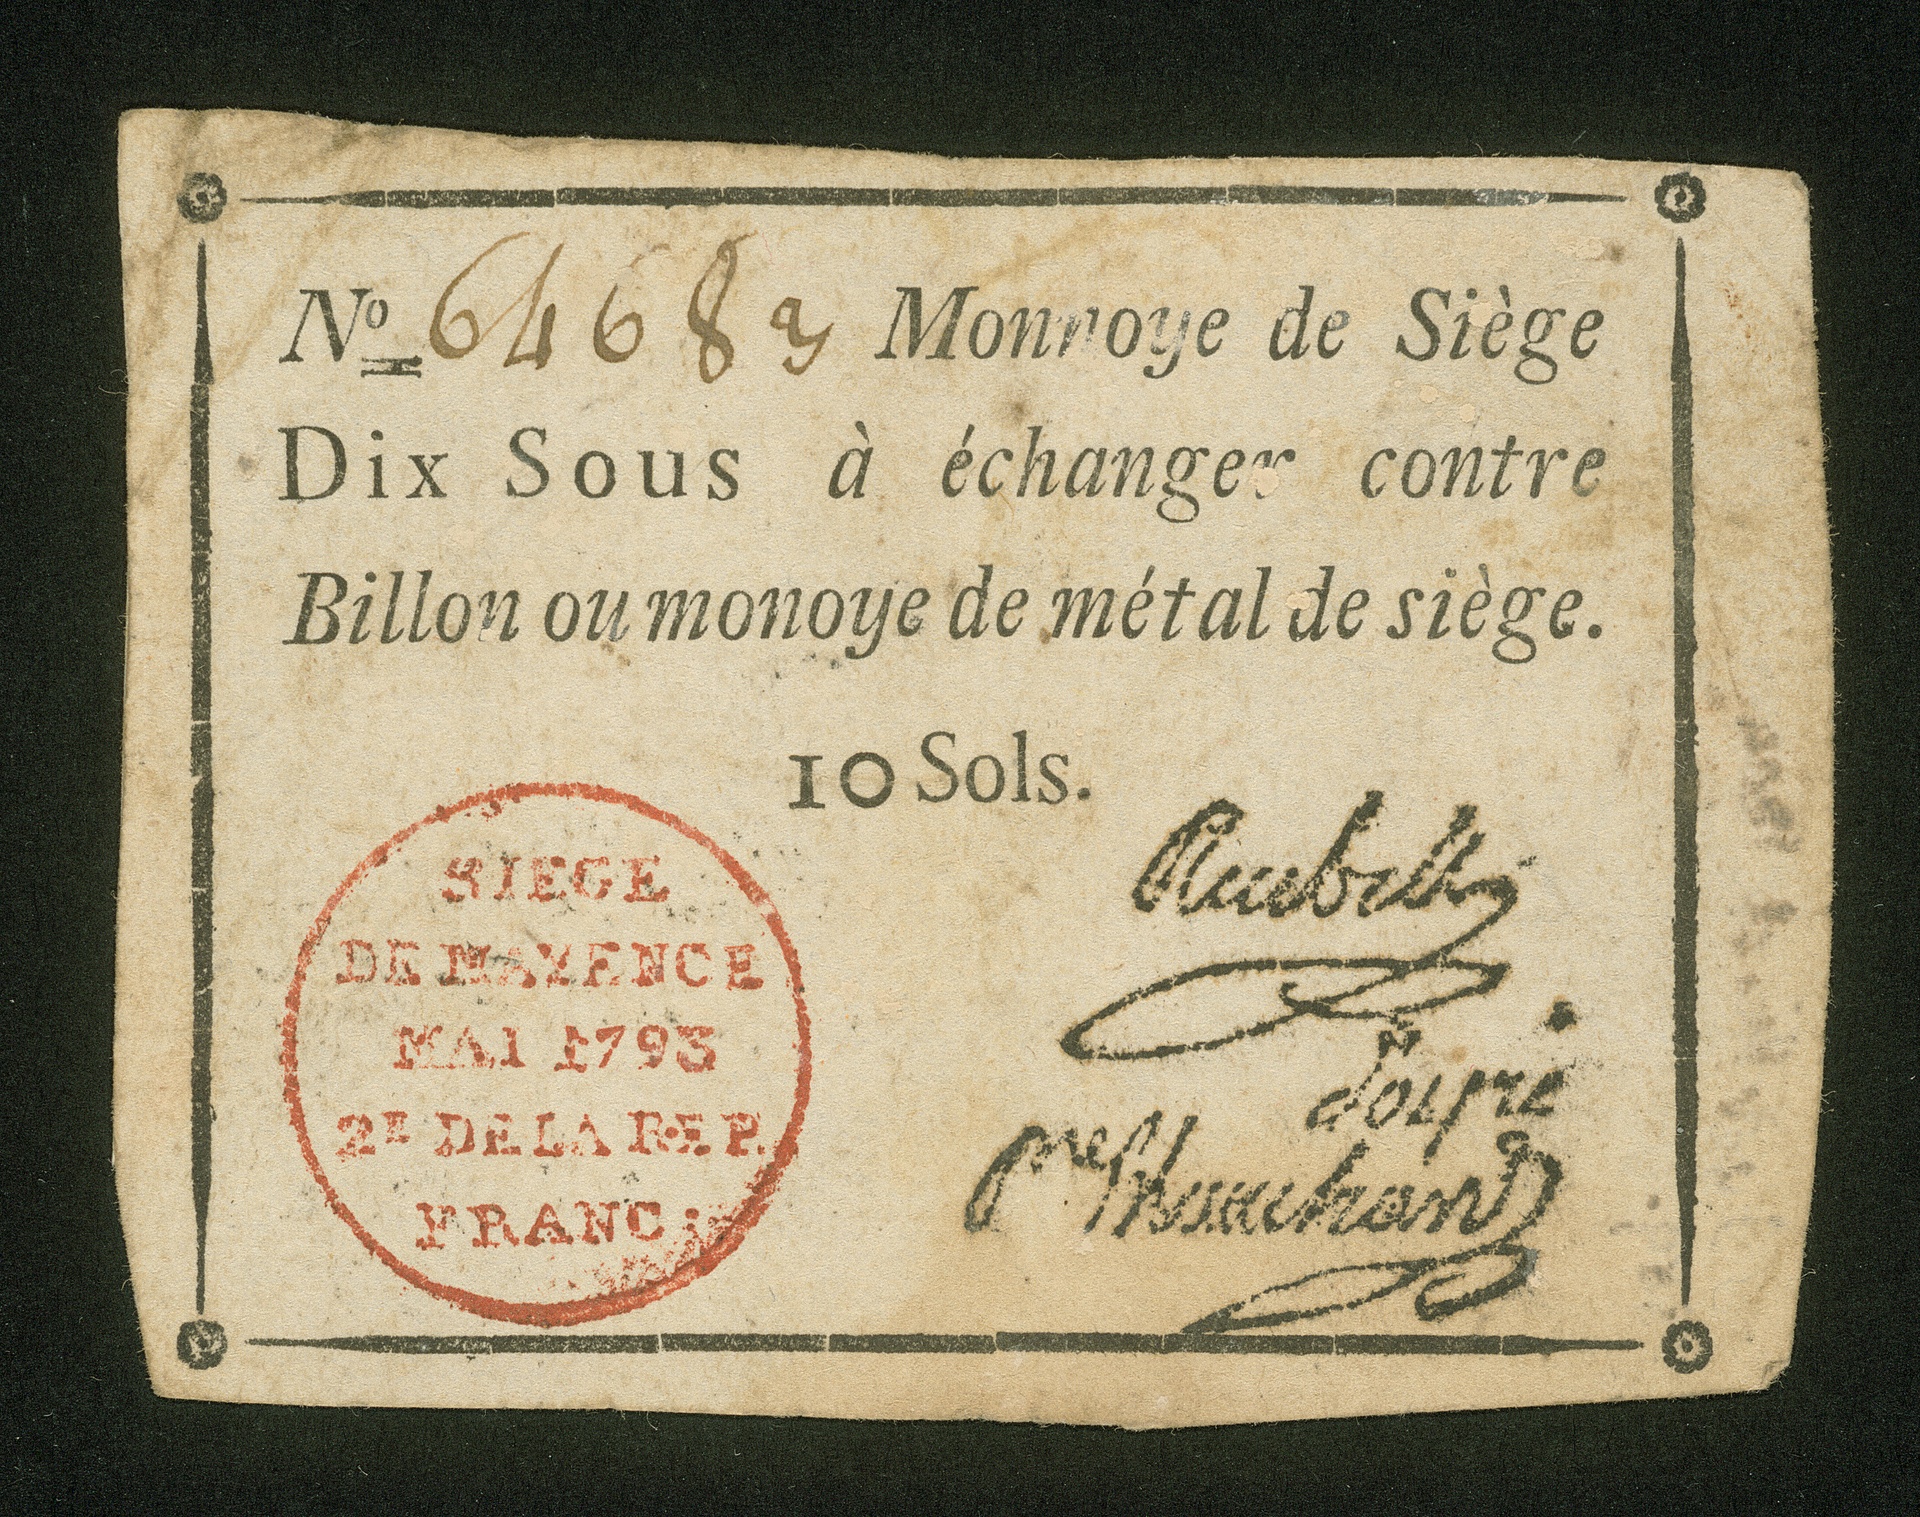 No 64683 Monnoye de Siège
Dix Sous à échanger contre
Billon ou monoye de métal de siège.
10 Sols.
SIEGE
DE MAYENCE
MAI 1793
2E DE LA REP.
FRANC:
Reubell